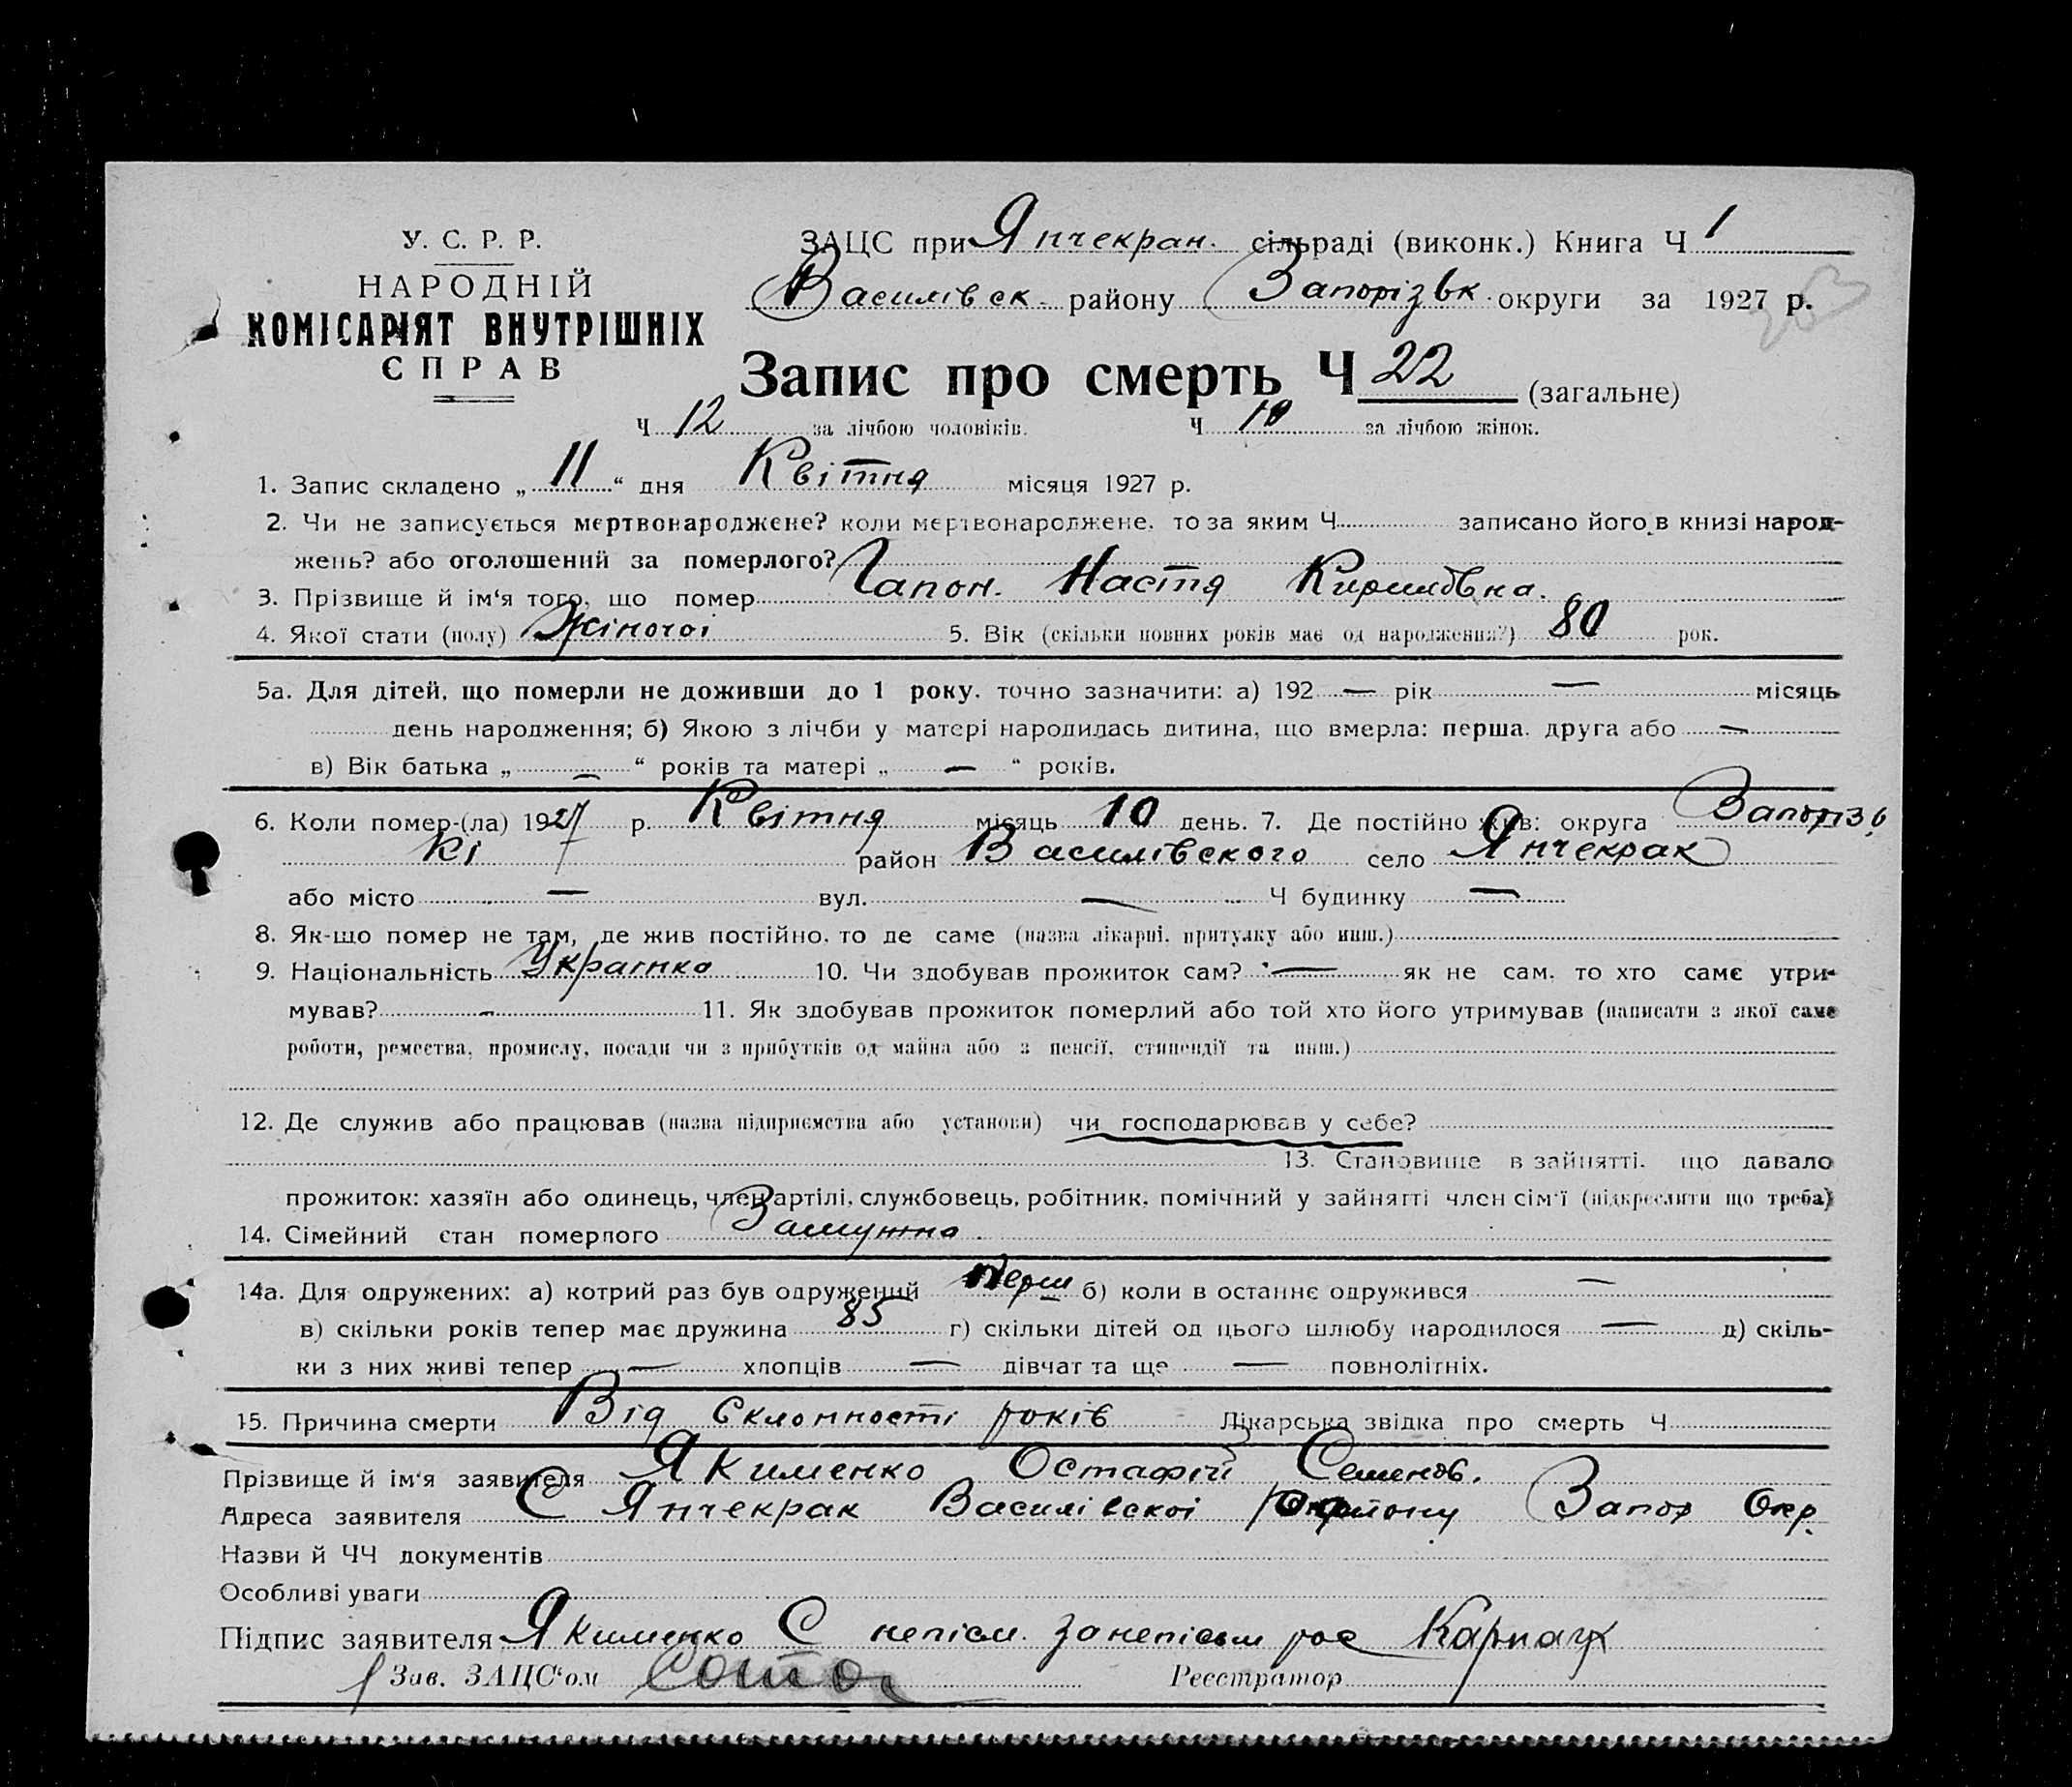 У. С. Р. Р.
НАРОДНІЙ
КОМІСАРІЯТ ВНУТРІШНІХ
СПРАВ
ЗАЦС при Янчекран. сільраді (виконк.) Книга Ч 1
Василівск. району Запорізьк. округи за 1927 р.
Запис про смерть Ч 22 (загальне)
Ч 12 за лічбою чоловіків. Ч 10 за лічбою жінок.
1. Запис складено „ 11 “ дня Квітня місяця 1927 р.
2. Чи не записується мертвонароджене? коли мертвонароджене, то за яким Ч записано його в книзі народ-
жень? або оголошений за померлого?
3. Прізвище й ім‘я того, що помер Гапон. Настя Кирилівна.
4. Якої стати (полу) Жіночоі 5. Вік (скільки повних років має од народження?) 80 рок.
5а. Для дітей, що померли не доживши до 1 року, точно зазначити: а) 192 — рік — місяць
день народження; б) Якою з лічби у матері народилась дитина, що вмерла: перша, друга або —
в) Вік батька „ — “ років та матері „ — “ років.
6. Коли помер-(ла) 1927 р. Квітня місяць 10 день. 7. Де постійно жив: округа Запорізь
кі район Василівского село Янчекрак
або місто — вул. — Ч будинку —
8. Як-що помер не там, де жив постійно, то де саме (назва лікарні, притулку або инш.)
9. Національність Українка 10. Чи здобував прожиток сам? — як не сам, то хто саме утри-
мував? - 11. Як здобував прожиток померлий або той хто його утримував (написати з якої саме
роботи, ремества, промислу, посади чи з прибутків од майна або з пенсії, стипендії та инш.)
12. Де служив або працював (назва підприємства або установи) чи господарював у себе?
13. Становище в зайнятті, що давало
прожиток: хазяїн або одинець, член артілі, службовець, робітник, помічний у зайнятті член сім‘ї (підкреслити що треба)
14. Сімейний стан померлого Замужна.
14а. Для одружених: а) котрий раз був одружений перш б) коли в останнє одружився —
в) скільки років тепер має дружина 85 г) скільки дітей од цього шлюбу народилося — д) скіль-
ки з них живі тепер — хлопців — дівчат та ще — повнолітніх.
15. Причина смерти Від Склонности років Лікарська звідка про смерть Ч
Прізвище й ім‘я заявителя Якименко Остафій Семенов.
Адреса заявителя С Янчекрак Василівскоі району Запор Окр.
Назви й ЧЧ документів
Особливі уваги
Підпис заявителя Якименко С непісм. за непісьм рос
Зав. ЗАЦС‘ом Реєстратор